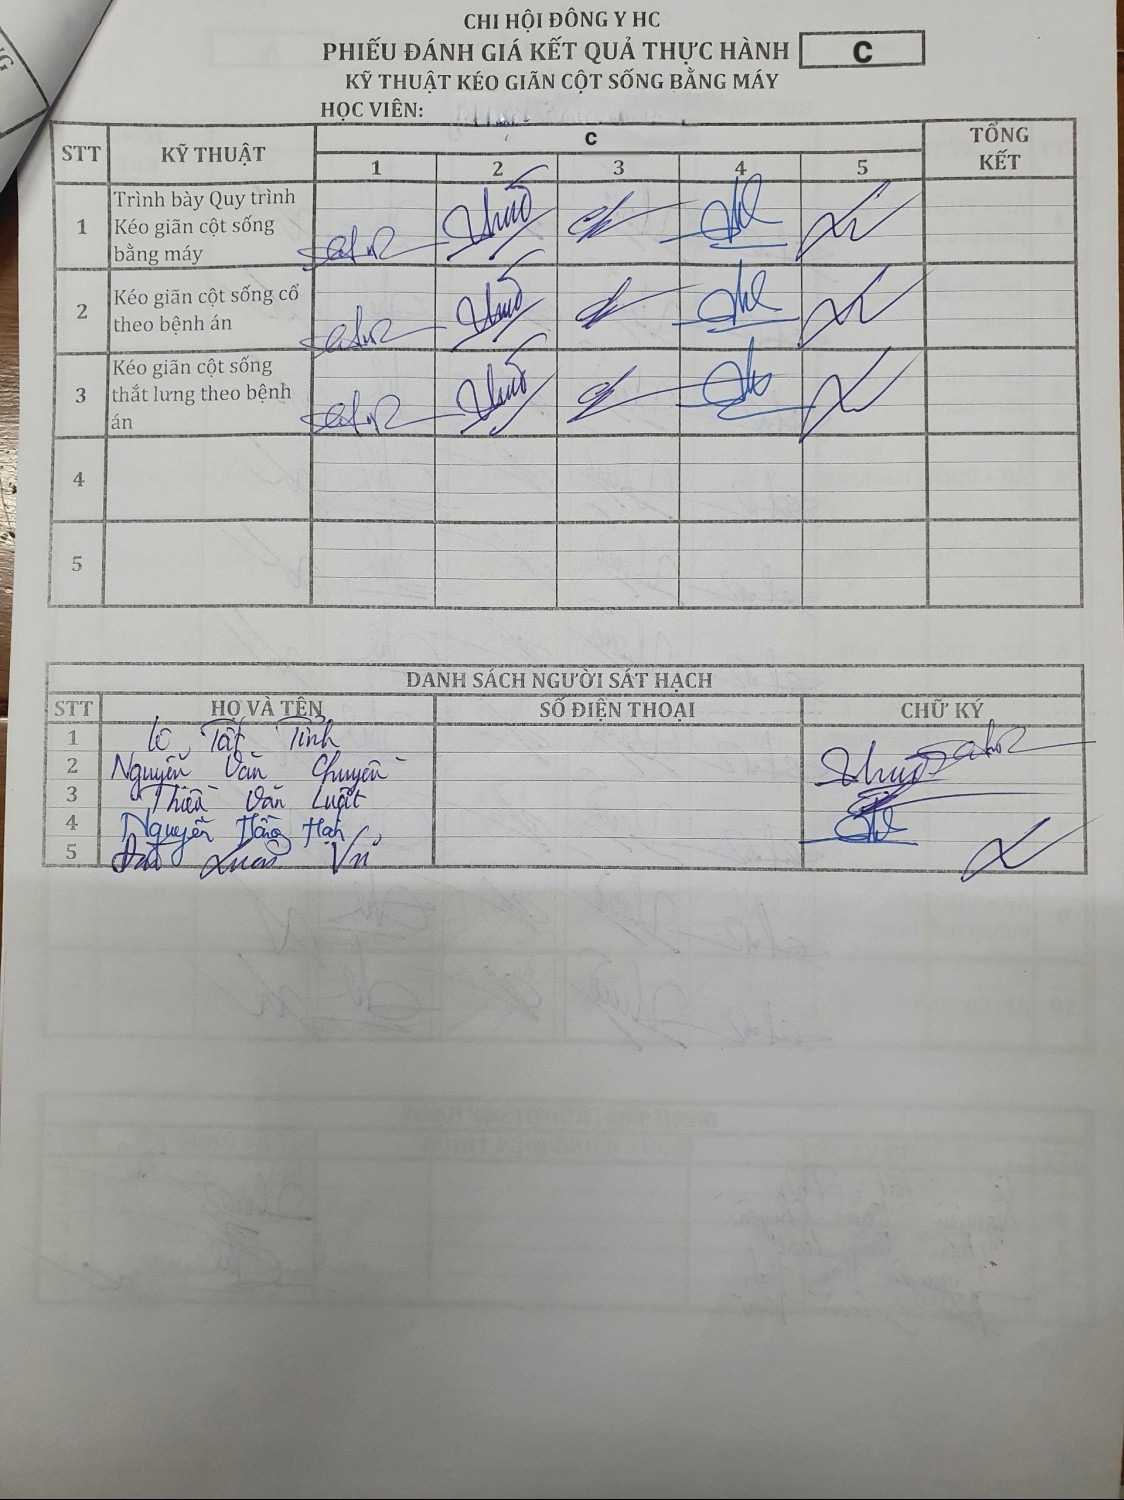 CHI HỘI ĐÔNG Y HC
PHIẾU ĐÁNH GIÁ KẾT QUẢ THỰC HÀNH C
KỸ THUẬT KÉO GIÃN CỘT SỐNG BẰNG MÁY
HỌC VIÊN:
STT KỸ THUẬT C TỔNG KẾT
1 2 3 4 5
1 Trình bày Quy trình
Kéo giãn cột sống
bằng máy
2 Kéo giãn cột sống cổ
theo bệnh án
3 Kéo giãn cột sống
thắt lưng theo bệnh
án
4
5
DANH SÁCH NGƯỜI SÁT HẠCH
STT HỌ VÀ TÊN SỐ ĐIỆN THOẠI CHỮ KÝ
1 Tất Tỉnh
2 Nguyễn Văn Chuyền
3 Thiều Văn Luyệt
4 Nguyễn Hồng Hạnh
5 Xuân Vũ